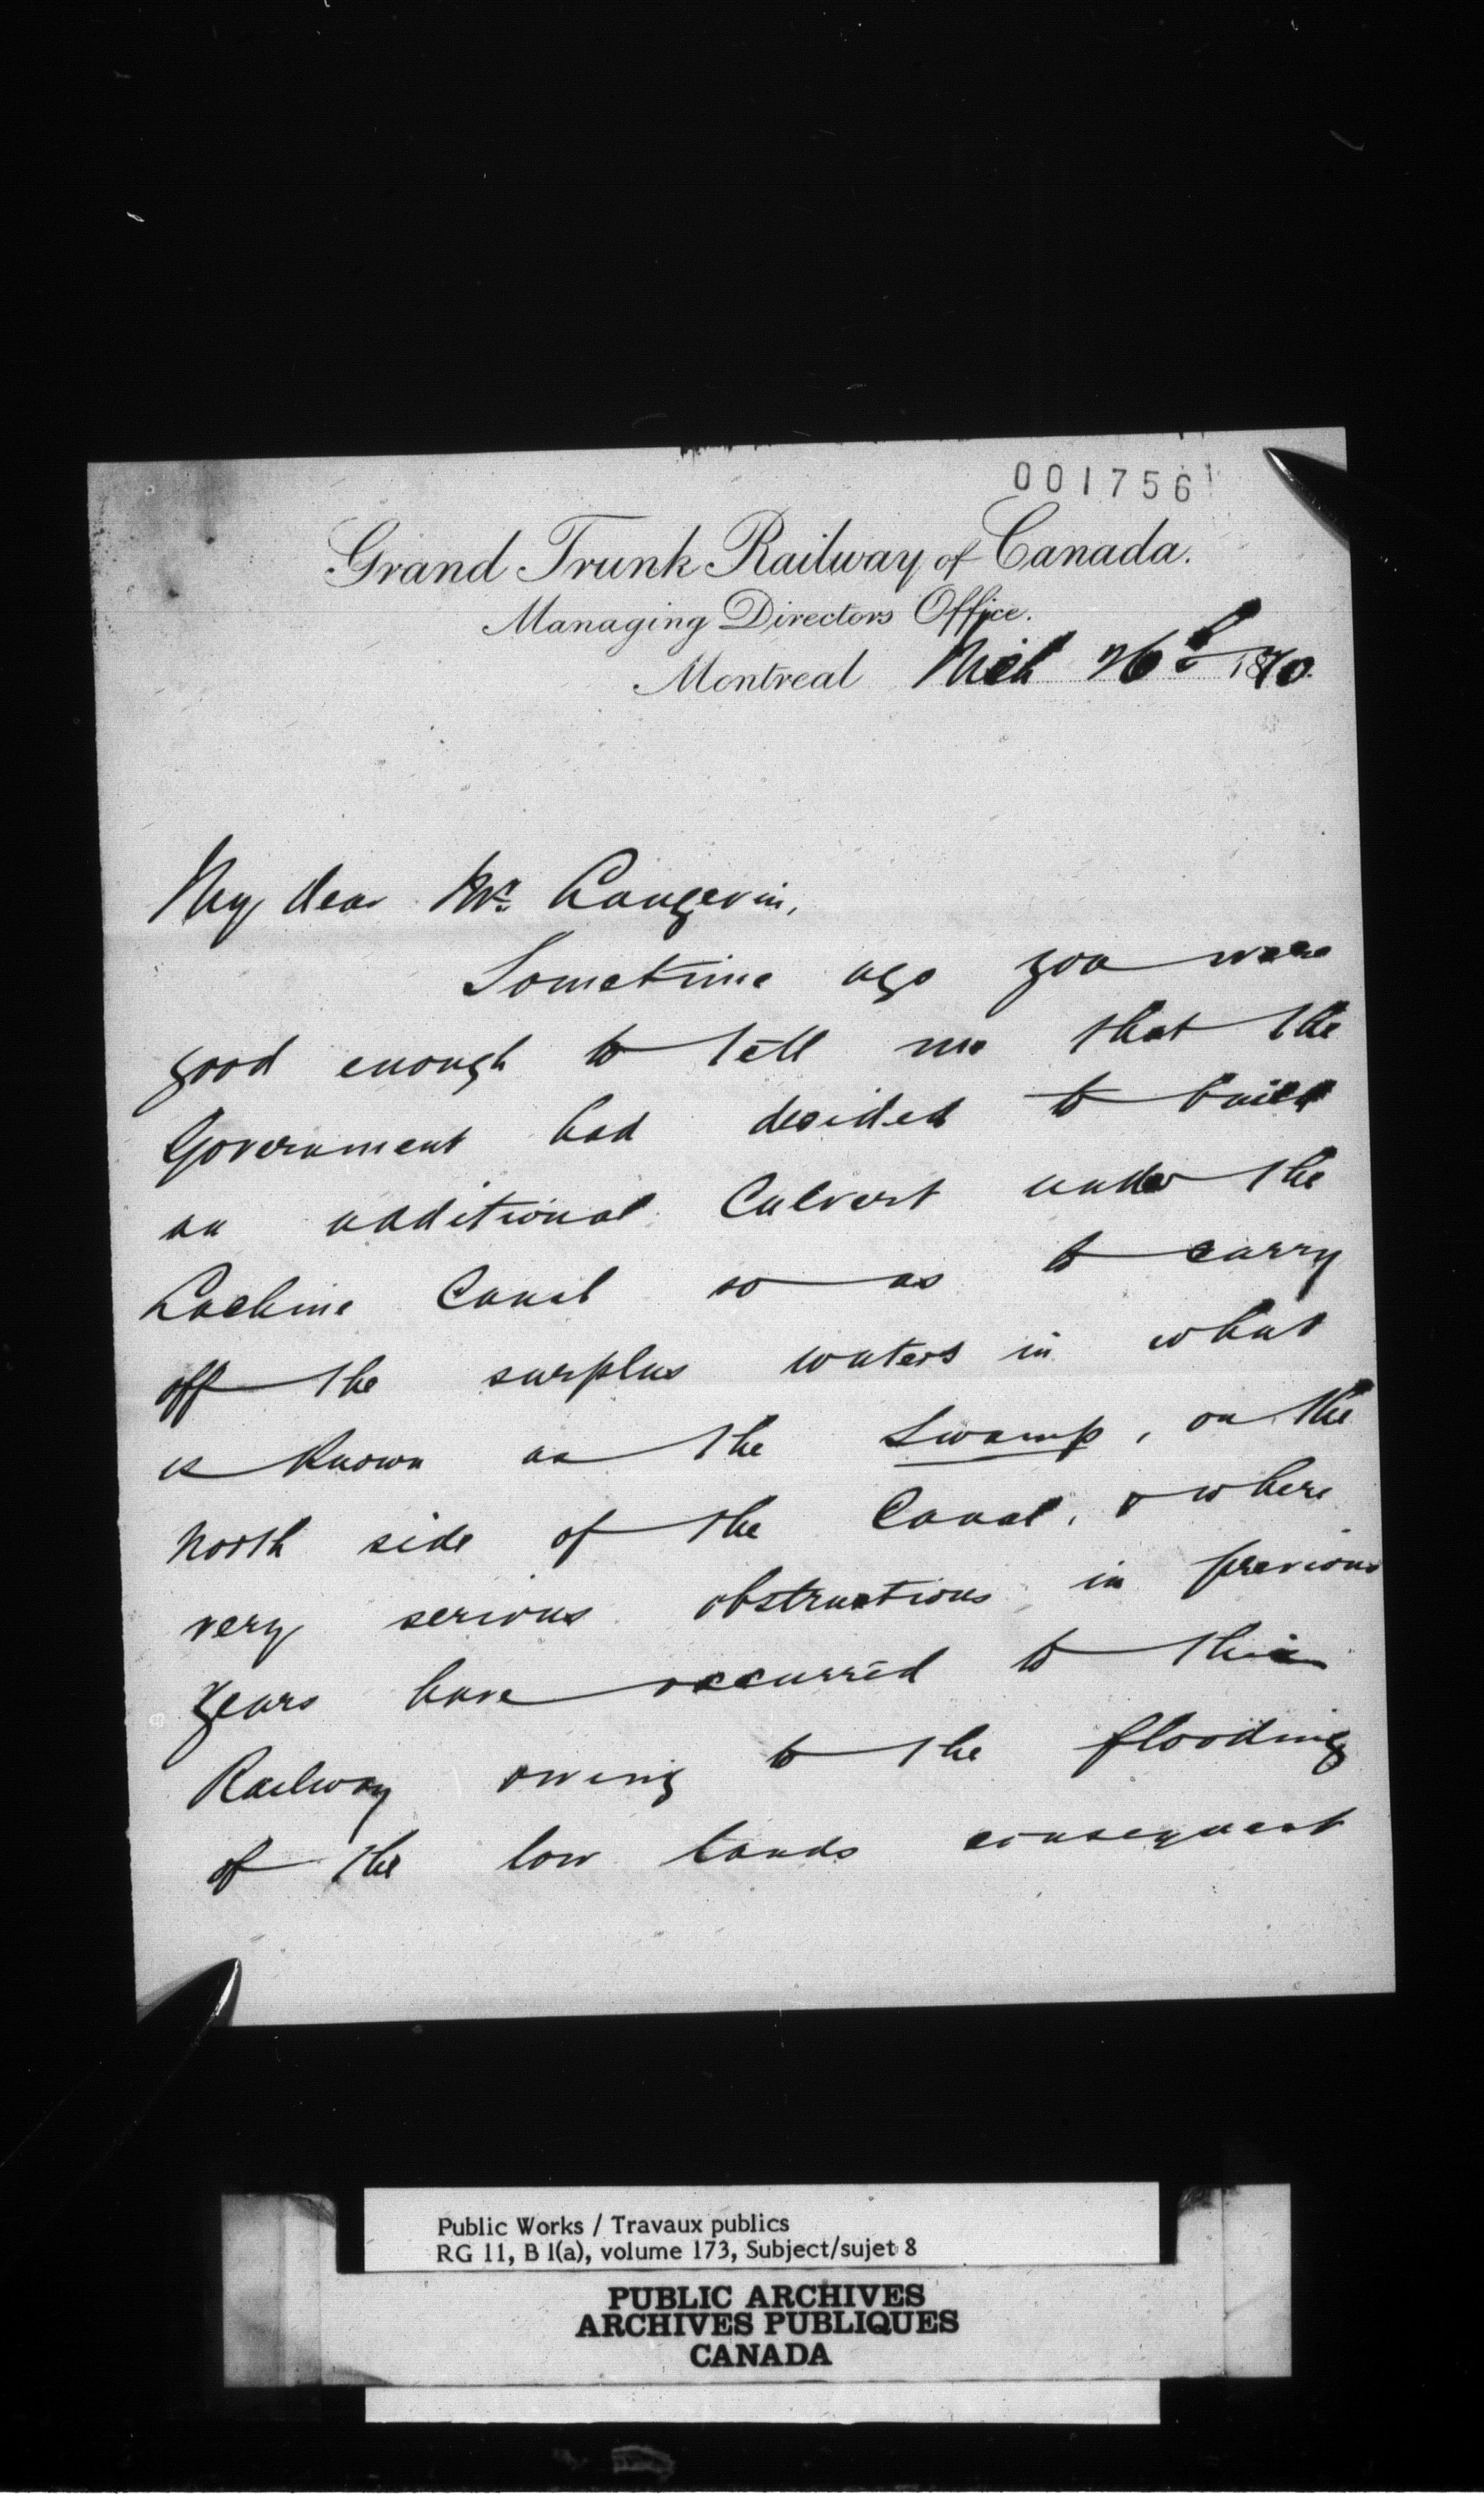 001756
Grand Trunk Railway of Canada.
Managing Directors Office.
Montreal Mch 26th 1870.
My dear Mr. Langevin,
Sometime ago you were
good enough to tell me that the
Government had decided to build
an additional Culvert under the
Lachine Canal so as to carry
off the surplus waters in what
is known as the Swamp, on the
north side of the Canal, & where
very serious obstructions in previous
years have occurred to this
Railway owing to the flooding
of the low lands consequent
Public Works / Travaux publics
RG 11, B 1(a), volume 173, Subject/sujet 8
PUBLIC ARCHIVES
ARCHIVES PUBLIQUES
CANADA